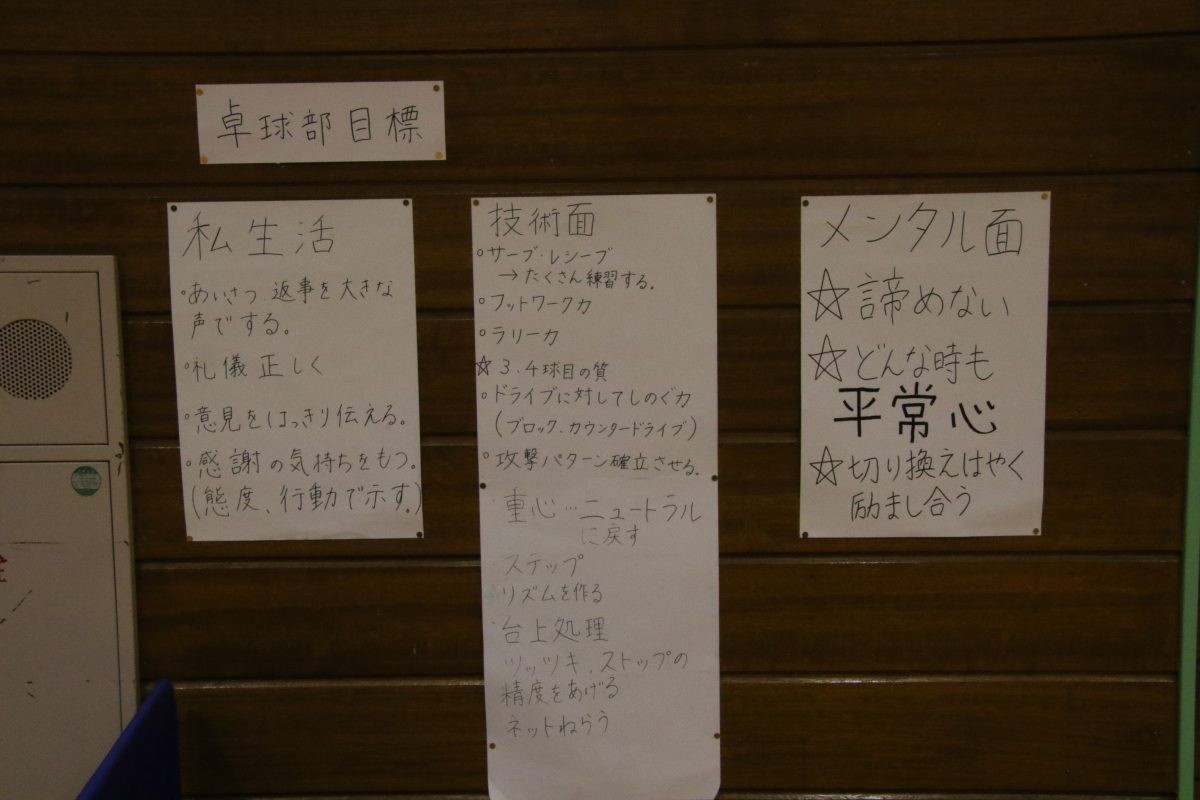 卓球部目標
私生活
◦あいさつ 返事を大きな
声でする。
◦礼儀正しく
◦意見をはっきり伝える。
◦感謝の気持ちをもつ。
(態度、行動で示す。)
技術面
◦サーブ・レシーブ
→たくさん練習する。
◦フットワーク力
◦ラリー力
☆3、4球目の質
◦ドライブに対してしのぐ力
(ブロック、カウンタードライブ)
◦攻撃パターン確立させる。
・重心…ニュートラル
に戻す
ステップ
リズムを作る
・台上処理
ツッツキ、ストップの
精度をあげる
ネットねらう
メンタル面
☆諦めない
☆どんな時も
平常心
☆切り換えはやく
励まし合う